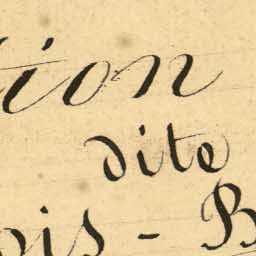 tion
dite
ois - B